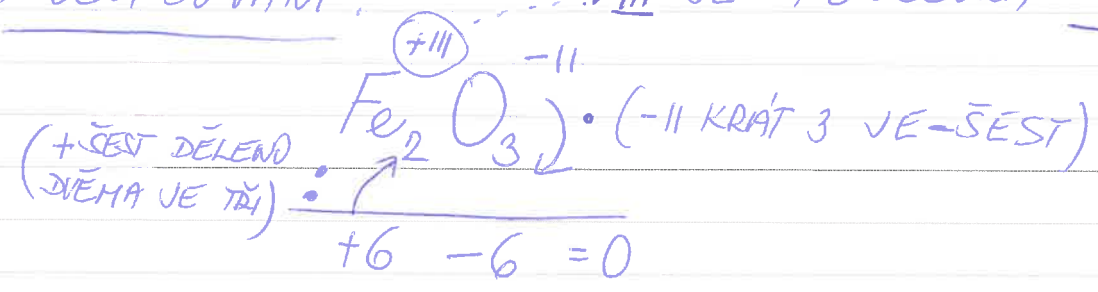 +III -II
Fe2O3 • (-II KRÁT 3 VE -ŠEST)
(+ŠEST DĚLENO
DVĚMA VE TŘI) :
+6 -6 = 0